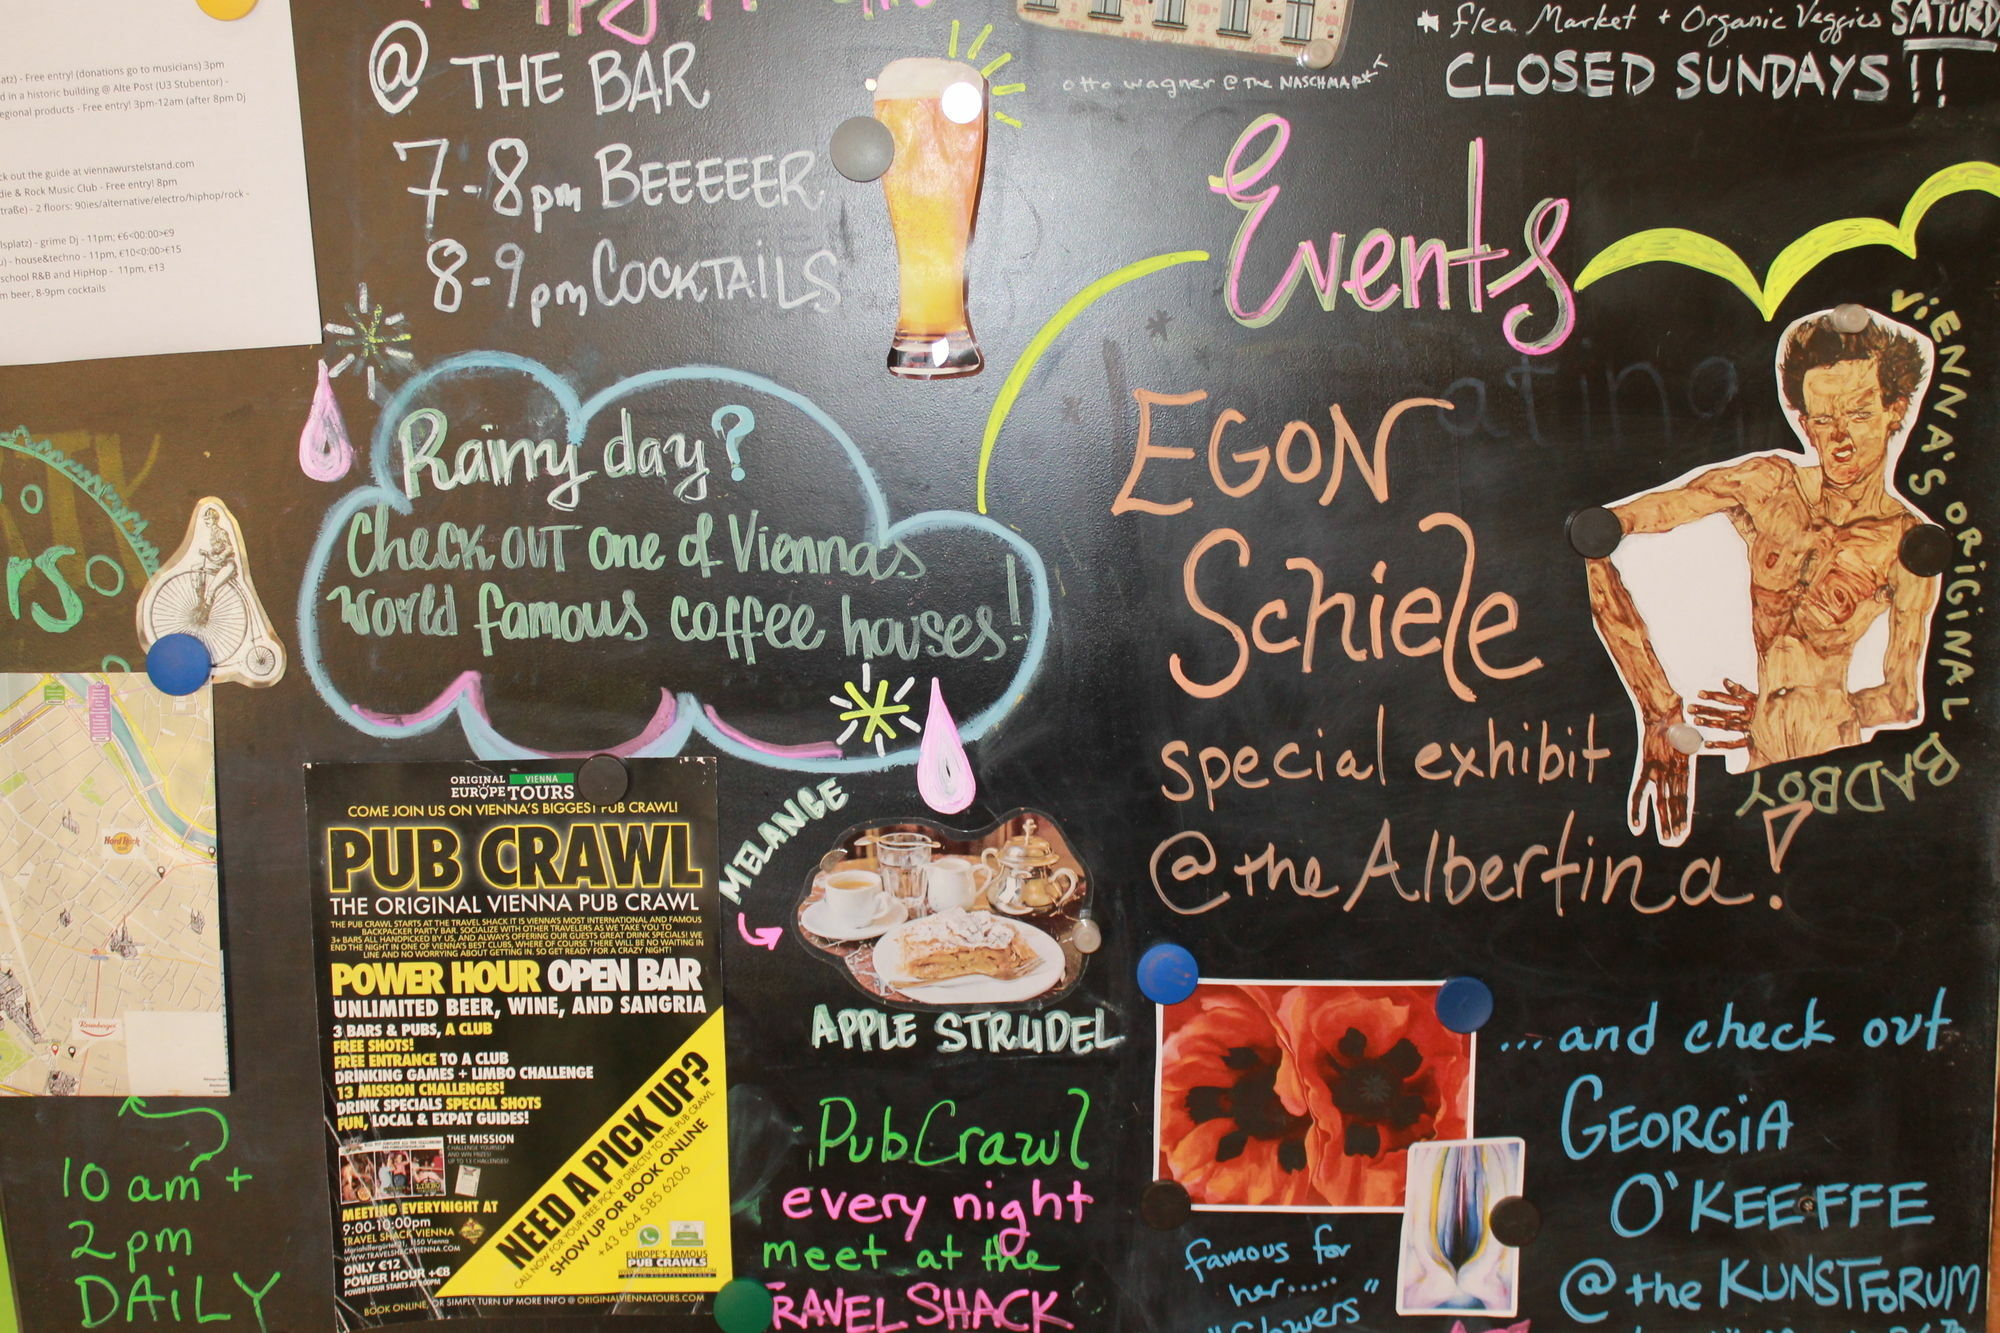 atz) - Free entry! (donations go to musicians) 3pm
d in a historic building @ Alte Post (U3 Stubentor) -
egional products - Free entry! 3pm-12am (after 8pm Dj
ck out the guide at viennawurstelstand.com
die & Rock Music Club - Free entry! 8pm
traße) - 2 floors: 90ies/alternative/electro/hiphop/rock -
lsplatz) - grime Dj - 11pm; €6<00:00>€9
u) - house&techno - 11pm, €10<0:00>€15
school R&B and HipHop - 11pm, €13
m beer, 8-9pm cocktails
@ THE BAR
7-8pm BEEEEER
8-9pm COCKTAILS
otto wagner @ the NASCHMARKT
* flea Market + Organic Veggies SATURD
CLOSED SUNDAYS!!
Events
Rainy day?
Check OUT one of Viennas
World famous coffee houses!
EGON
Schiele
special exhibit
@ the Albertina!
ViENNA'S ORiGiNAL BADBOY
rs
Hard Rock
Rosenberger
10 am +
2pm
DAiLY
ORIGINAL VIENNA
EUROPE TOURS
COME JOIN US ON VIENNA'S BIGGEST PUB CRAWL!
PUB CRAWL
THE ORIGINAL VIENNA PUB CRAWL
THE PUB CRAWL STARTS AT THE TRAVEL SHACK IT IS VIENNA'S MOST INTERNATIONAL AND FAMOUS
BACKPACKER PARTY BAR. SOCIALIZE WITH OTHER TRAVELERS AS WE TAKE YOU TO
3+ BARS ALL HANDPICKED BY US, AND ALWAYS OFFERING OUR GUESTS GREAT DRINK SPECIALS! WE
END THE NIGHT IN ONE OF VIENNA'S BEST CLUBS, WHERE OF COURSE THERE WILL BE NO WAITING IN
LINE AND NO WORRYING ABOUT GETTING IN. SO GET READY FOR A CRAZY NIGHT!
POWER HOUR OPEN BAR
UNLIMITED BEER, WINE, AND SANGRIA
3 BARS & PUBS, A CLUB
FREE SHOTS!
FREE ENTRANCE TO A CLUB
DRINKING GAMES + LIMBO CHALLENGE
13 MISSION CHALLENGES!
DRINK SPECIALS SPECIAL SHOTS
FUN, LOCAL & EXPAT GUIDES!
THE MISSION
CHALLENGE YOURSELF
AND WIN PRIZES!
UP TO 13 CHALLENGES!
MEETING EVERYNIGHT AT
9:00-10:00pm
TRAVEL SHACK VIENNA
Mariahilfergürtel 21, 1150 Vienna
WWW.TRAVELSHACKVIENNA.COM
ONLY €12
POWER HOUR +€8
POWER HOUR STARTS AT 9:00PM
NEED A PICK UP?
CALL NOW FOR YOUR FREE PICK UP DIRECTLY TO THE PUB CRAWL
SHOW UP OR BOOK ONLINE
+43 664 585 6206
EUROPE'S FAMOUS
PUB CRAWLS
BOOK ONLINE, OR SIMPLY TURN UP MORE INFO @ ORIGINALVIENNATOURS.COM
MELANGE
APPLE STRUDEL
PubCrawl
every night
meet at the
TRAVEL SHACK
...and check out
GEORGiA
O'KEEFFE
@ the KUNSTFORUM
famous for
her.....
"flowers"